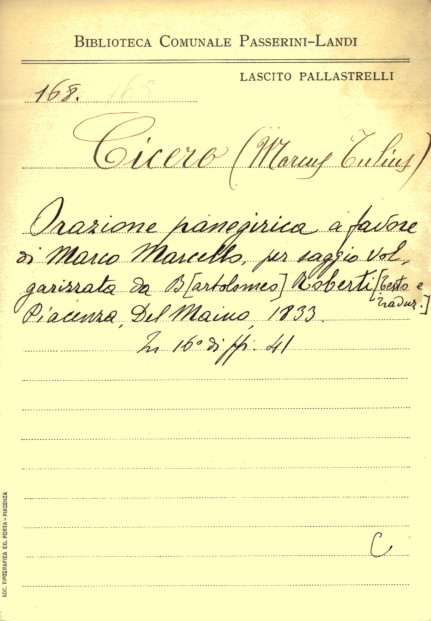 BIBLIOTECA COMUNALE PASSERINI-LANDI
LASCITO PALLASTRELLI
168. 168
Cicero (Marcus Tulius)
Orazione panegirica a favore
di Marco Marcello, per saggio vol-
garizzata da B[artolomeo] Roberti [testo e
traduz.]
Piacenza, Del Maino, 1833.
In 16° di pp. 41
C
SOC. TIPOGRAFICA ED. PORTA - PIACENZA